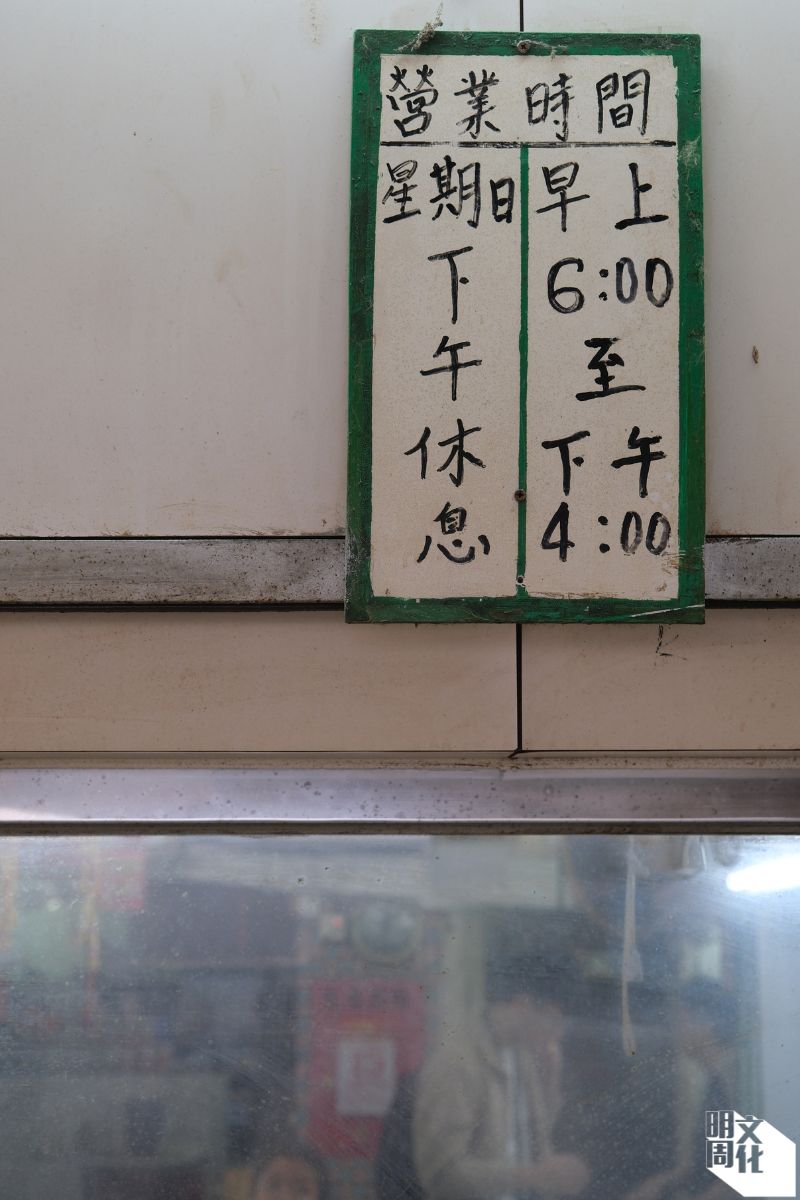 營業時間
早上
6:00
至
下午
4:00
星期日
下
午
休
息
明周
文化